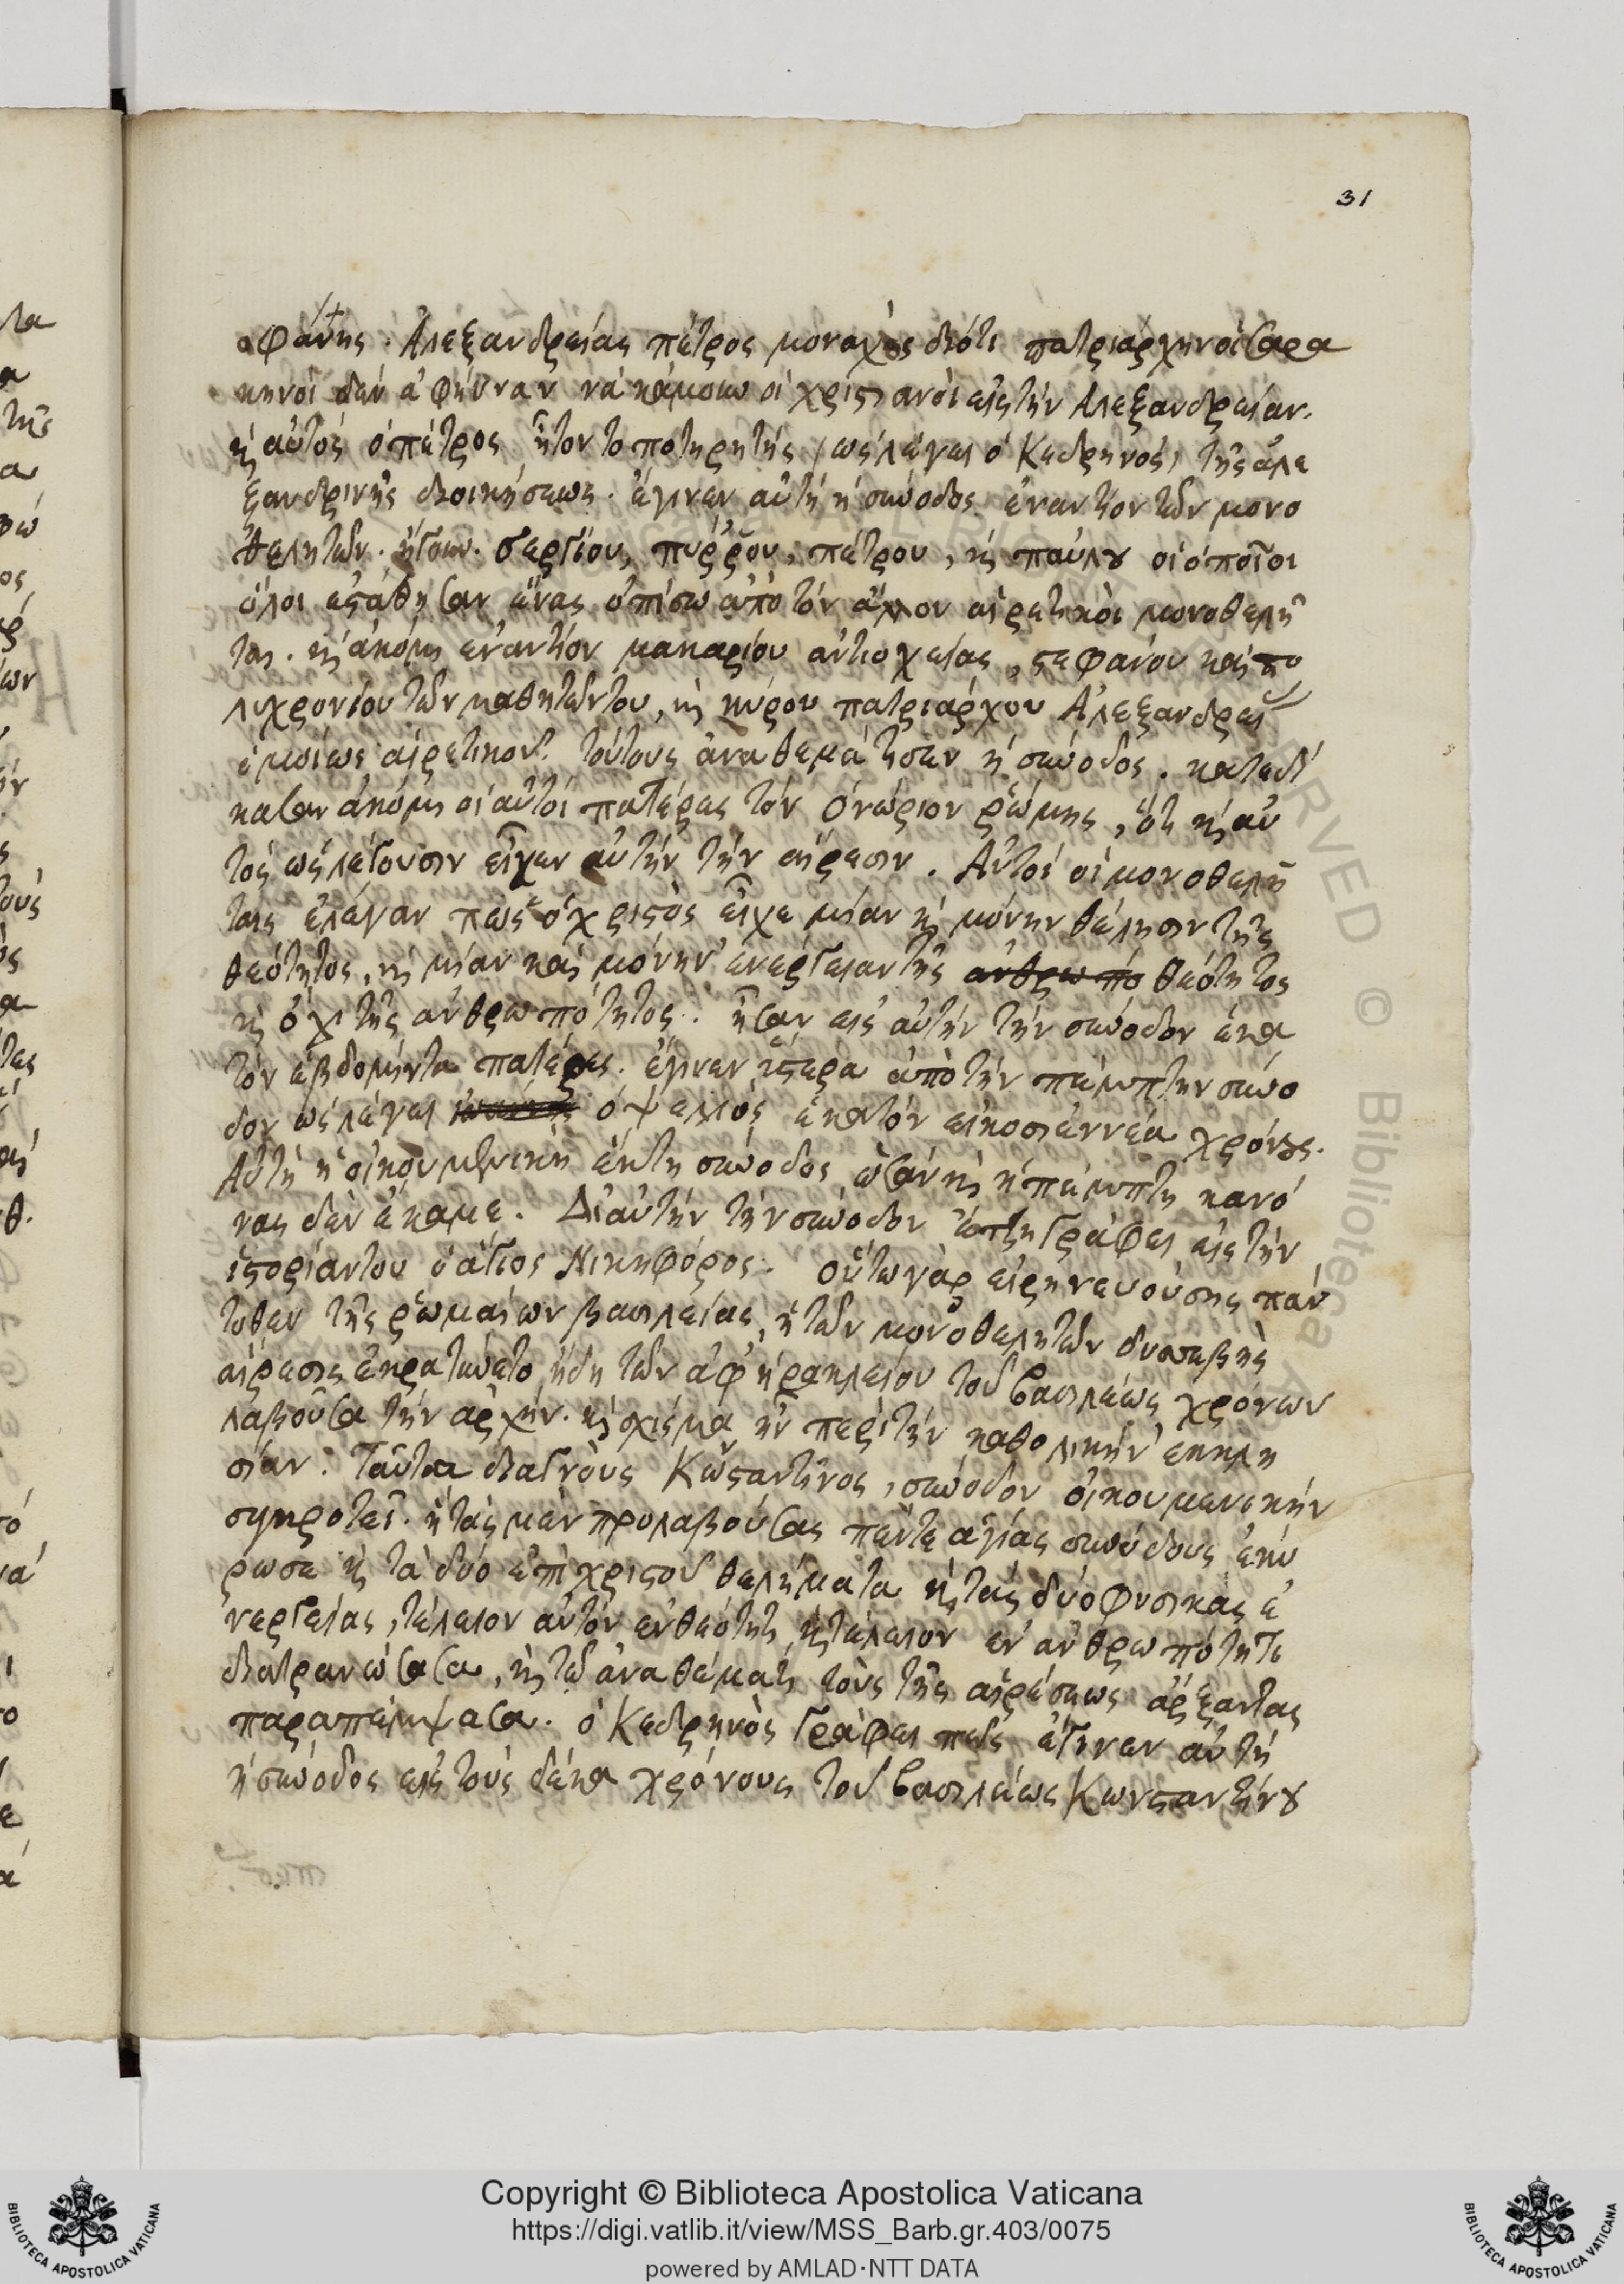 31
οφάνης. Ἀλεξανδρείας πέτρος μοναχὸς διότι πατριάρχην οἱ σαρα
κηνοὶ δὲν ἀφήνναν νὰ κάμουν οἱ χριστιανοὶ εἰς τὴν Ἀλεξανδρείαν.
κὶ αὐτὸς ὁ πέτρος ἦτον τοποτηρητής, ὡς λέγει ὁ Κεδρηνός, τῆς ἀλε
ξανδρινῆς διοικήσεως. ἔγινεν αὐτὴ ἡ σύνοδος ἐναντίον τῶν μονο
θελητῶν. ἤγουν. σεργίου, πύρρου, πέτρου, κὶ παύλου οἱ ὁποῖοι
ὅλοι ἐστάθησαν ἕνας ὀπίσω ἀπὸ τὸν ἄλλον αἱρετικοὶ μονοθελῆ
ται. κὶ ἀκόμη ἐναντίον μακαρίου ἀντιοχείας, στεφάνου καὶ πο
λυχρονίου τῶν μαθητῶν του, κὶ κύρου πατριάρχου Ἀλεξανδρεί
ὁμοίως αἱρετικοῦ. τούτους ἀναθεμάτισεν ἡ σύνοδος. κατεδί
κασαν ἀκόμη οἱ αὐτοὶ πατέρες τὸν ὀνώριον ῥώμης, ὅτι κὶ αὐ
τὸς ὡς λέγουσιν εἶχεν αὐτὴν τὴν αἵρεσιν. Αὐτοὶ οἱ μονοθελῆ
ταις ἔλεγαν πῶς ὁ χριστὸς εἶχε μίαν κὶ μόνην θέλησιν τῆς
θεότητος, κὶ μίαν καὶ μόνην ἐνέργειαν τῆς ἀνθρωπό θεότητος
κὶ ὄχι τῆς ἀνθρωπότητος. ἦσαν εἰς αὐτὴν τὴν σύνοδον ἑκα
τὸν ἑβδομῆντα πατέρες. ἔγινεν ὕστερα ἀπὸ τὴν πέμπτην σύνο
δον ὡς λέγει ὁ ψελλός ἑκατὸν εἰκοσιεννέα χρόνους.
Αὐτὴ ἡ οἰκουμενικὴ ἕκτη σύνοδος ὡσὰν κὶ ἡ πέμπτη κανό
νας δὲν ἔκαμε. Δι αὐτὴν τὴν σύνοδον ἔτζη γράφει εἰς τὴν
ἱστορίαν του ὁ ἅγιος Νικηφόρος. οὕτω γὰρ εἰρηνευούσης πάν
τοθεν τῆς ῥωμαίων βασιλείας, ἡ τῶν μονοθελητῶν δυσσεβὴς
αἵρεσις ἐκρατύνετο ἤδη τῶν ἀφ ἡρακλείου τοῦ βασιλέως χρόνων
λαβοῦσα τὴν ἀρχήν. κὶ σχίσμα ἦν περὶ τὴν καθολικὴν ἐκκλη
σίαν. Ταῦτα διαγνοὺς Κωνσταντῖνος, σύνοδον οἰκουμενικὴν
συγκροτεῖ. ἡ τὰς μὲν προλαβούσας πέντε ἁγίας συνόδους ἐκύ
ρωσε κὶ τὰ δύο ἐπὶ χριστοῦ θελήματα κὶ τὰς δύο φυσικὰς ἐ
νεργείας, τέλειον αὐτὸν ἐν θεότητι, κὶ τέλειον ἐν ἀνθρωπότητι
διατρανώσασα, κὶ τῷ ἀναθέματι τοὺς τῆς αἱρέσεως ἄρξαντας
παραπέμψασα. ὁ Κεδρηνὸς γράφει πῶς ἔγινεν αὐτὴ
ἡ σύνοδος εἰς τοὺς δέκα χρόνους τοῦ βασιλέως Κωνσταντίνου
Copyright © Biblioteca Apostolica Vaticana
https://digi.vatlib.it/view/MSS_Barb.gr.403/0075
powered by AMLAD·NTT DATA
BIBLIOTECA APOSTOLICA VATICANA
BIBLIOTECA APOSTOLICA VATICANA